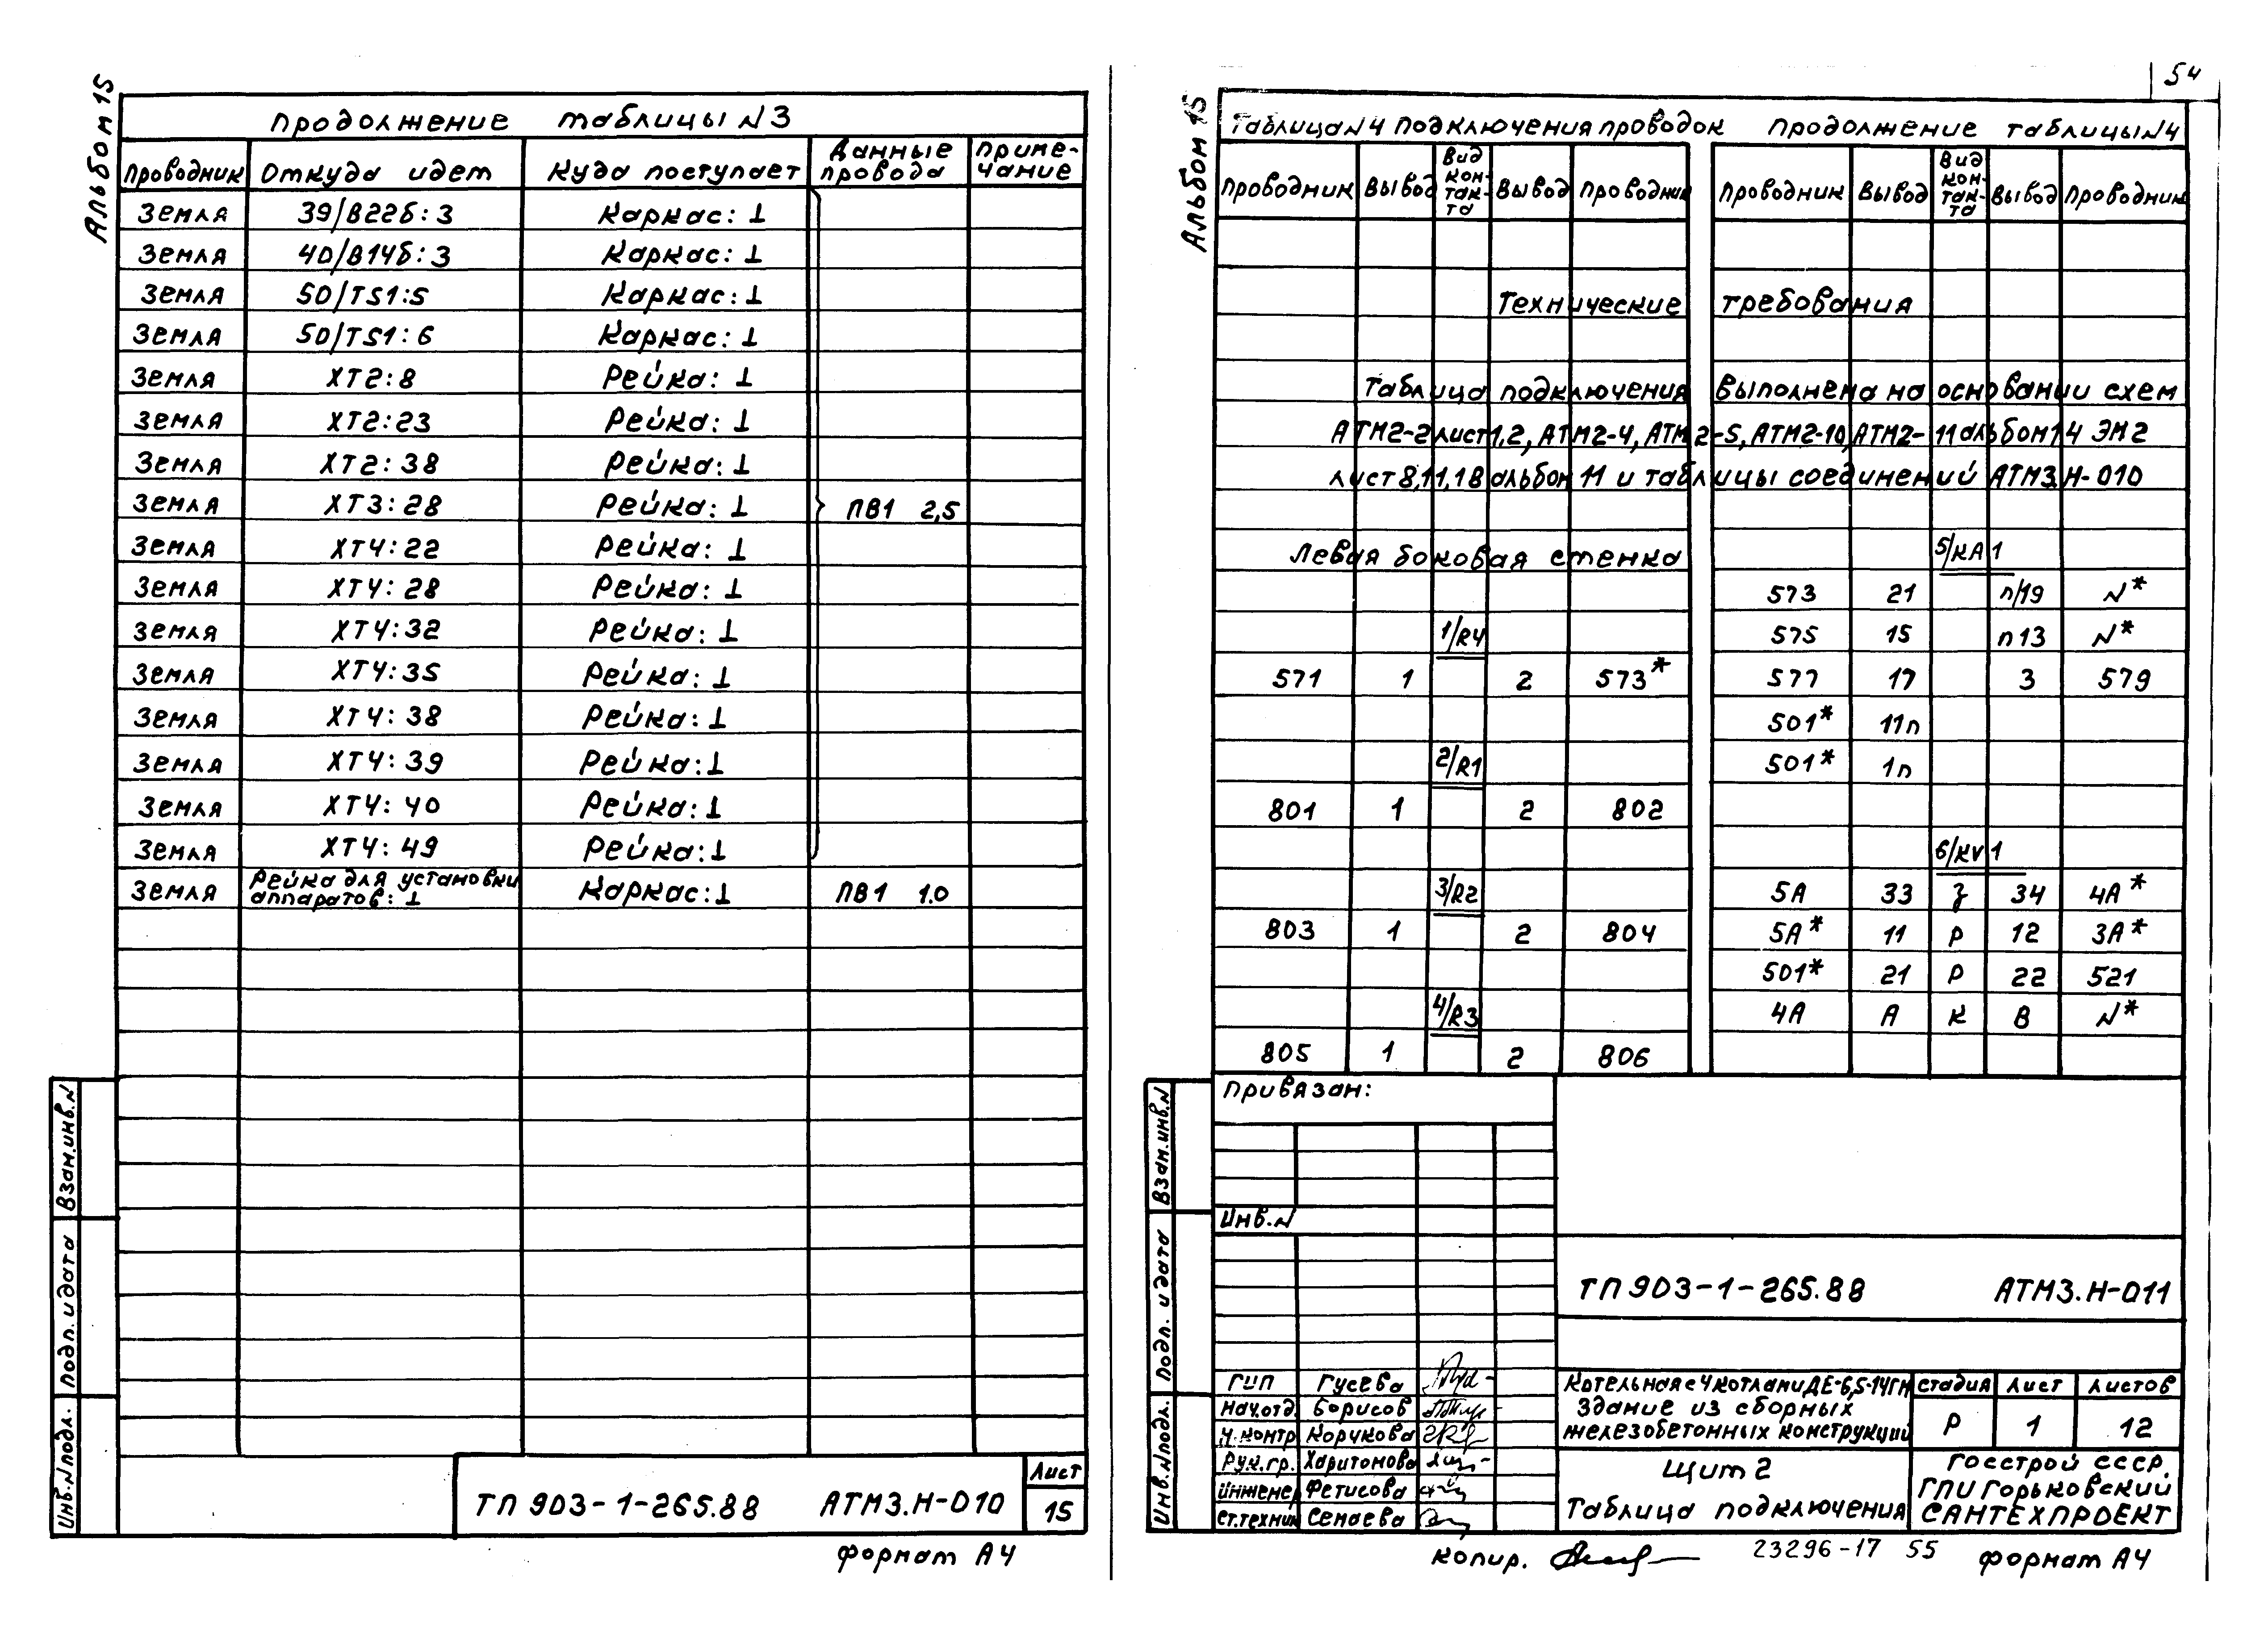 Альбом 15
Продолжение таблицы N3
Проводник Откуда идет Куда поступает Данные провода Приме-чание
Земля 39/В22б:3 Каркас:⊥
Земля 40/В14б:3 Каркас:⊥
Земля 50/TS1:5 Каркас:⊥
Земля 50/TS1:6 Каркас:⊥
Земля ХТ2:8 Рейка:⊥
Земля ХТ2:23 Рейка:⊥
Земля ХТ2:38 Рейка:⊥
Земля ХТ3:28 Рейка:⊥ ПВ1 2,5
Земля ХТ4:22 Рейка:⊥
Земля ХТ4:28 Рейка:⊥
Земля ХТ4:32 Рейка:⊥
Земля ХТ4:35 Рейка:⊥
Земля ХТ4:38 Рейка:⊥
Земля ХТ4:39 Рейка:⊥
Земля ХТ4:40 Рейка:⊥
Земля ХТ4:49 Рейка:⊥
Земля Рейка для установки аппаратов:⊥ Каркас:⊥ ПВ1 1.0
Взам.инв.N
Подп. и дата
Инв.N подл.
ТП 903-1-265.88 АТМ3.Н-010
Лист
15
формат А4
54
Альбом 15
Таблица N4 подключения проводок Продолжение таблицы N4
Проводник Вывод Вид кон-так-та Вывод Проводник Проводник Вывод Вид кон-так-та Вывод Проводник
Технические требования
Таблица подключения выполнена на основании схем
АТМ2-2 лист 1,2, АТМ2-4, АТМ2-5, АТМ2-10, АТМ2-11 альбом 14 ЭМ2
лист 8,11,18 альбом 11 и таблицы соединений АТМ3.Н-010
Левая боковая стенка
1/R4
571 1 2 573*
2/R1
801 1 2 802
3/R2
803 1 2 804
4/R3
805 1 2 806
5/КА1
573 21 п/19 N*
575 15 п13 N*
577 17 3 579
501* 11п
501* 1п
6/KV1
5А 33 З 34 4А*
5А* 11 Р 12 3А*
501* 21 Р 22 521
4А А К В N*
Привязан:
Инв.N
Взам.инв.N
Подп. и дата
Инв.N подл.
ТП 903-1-265.88 АТМ3.Н-011
ГИП Гусева
Нач.отд. Борисов
Н.контр Корчкова
Рук.гр. Харитонова
Инженер Фетисова
Ст.техник Семаева
Котельная с 4 котлами ДЕ-6,5-14ГМ
Здание из сборных
железобетонных конструкций
Стадия Лист Листов
Р 1 12
Щит 2
Таблица подключения
Госстрой СССР.
ГПИ Горьковский
САНТЕХПРОЕКТ
Копир. 23296-17 55 формат А4